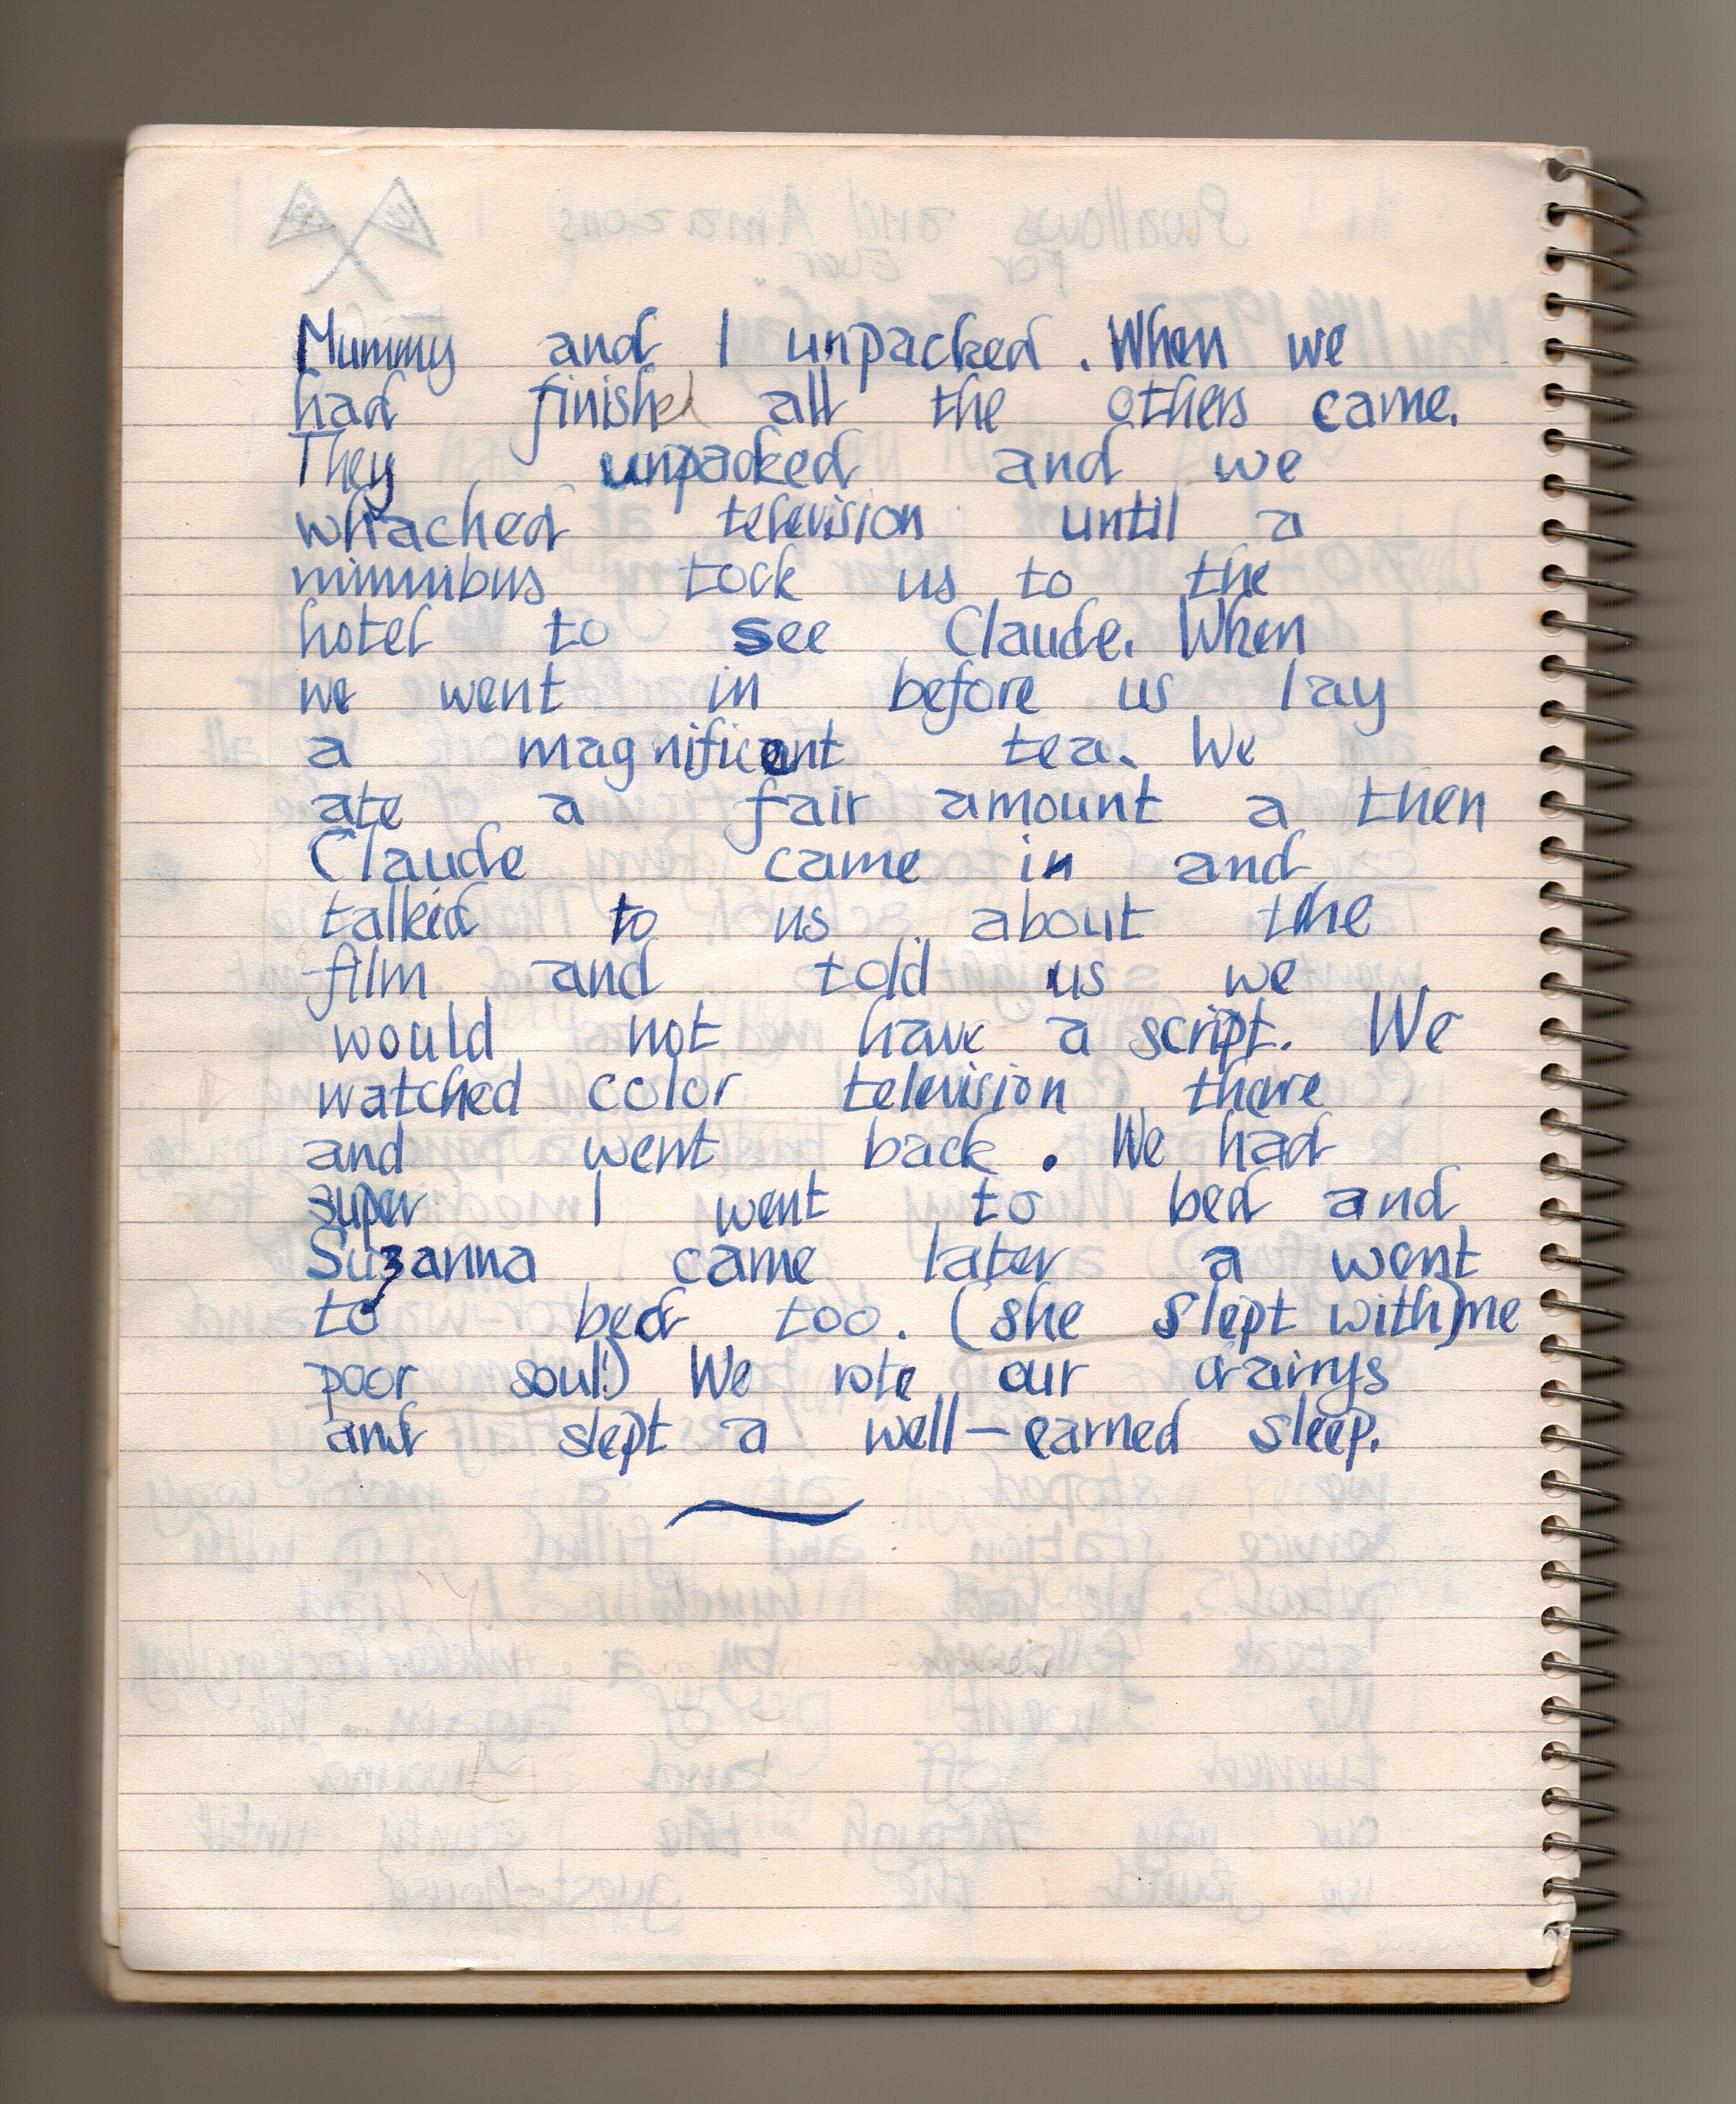 Mummy and I unpacked. When we
had finished all the others came.
They unpacked and we
whached television until a
minnibus tock us to the
hotel to see Claude. When
we went in before us lay
a magnificent tea. We
ate a fair amount a then
Claude came in and
talked to us about the
film and told us we
would not have a script. We
watched color television there
and went back. We had
super I went to bed and
Suzanna came later a went
to bed too. (she slept with) me
poor soul!) We rote our drairys
and slept a well-earned sleep.